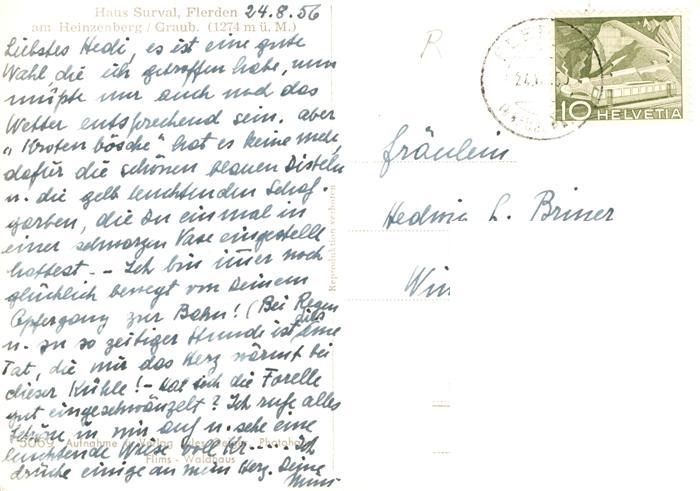 Haus Surval, Flerden 24.8.56
am Heinzenberg / Graub. (1274 m ü. M.)
Liebstes Hedi, es ist eine gute
Wahl, die ich getroffen habe, nun
müsste nur auch noch das
Wetter entsprechend sein. Aber
"Krotenbösche" hat es keine mehr,
dafür die schönen blauen Disteln
u. die gelb leuchtenden Schaf-
garben, die Du einmal in
einer schwarzen Vase eingestellt
hattest. - Ich bin immer noch
glücklich bewegt von Deinem
Opfergang zur Bahn! (Bei Regen
u. zu so zeitiger Stunde ist dies eine
Tat, die mir das Herz wärmt bei
dieser Kühle! - Hat sich die Forelle
gut eingeschwänzelt? Ich rufe alles
Schöne in mir auf u. sehe eine
leuchtende Wiese voll Kr..... Ich
drücke einige an mein Herz. Deine
5069 Aufnahme u. Verlag Photohaus
Flims - Waldhaus
Reproduktion verboten
R
10 HELVETIA
Fräulein
Hedwig L. Briner
Win